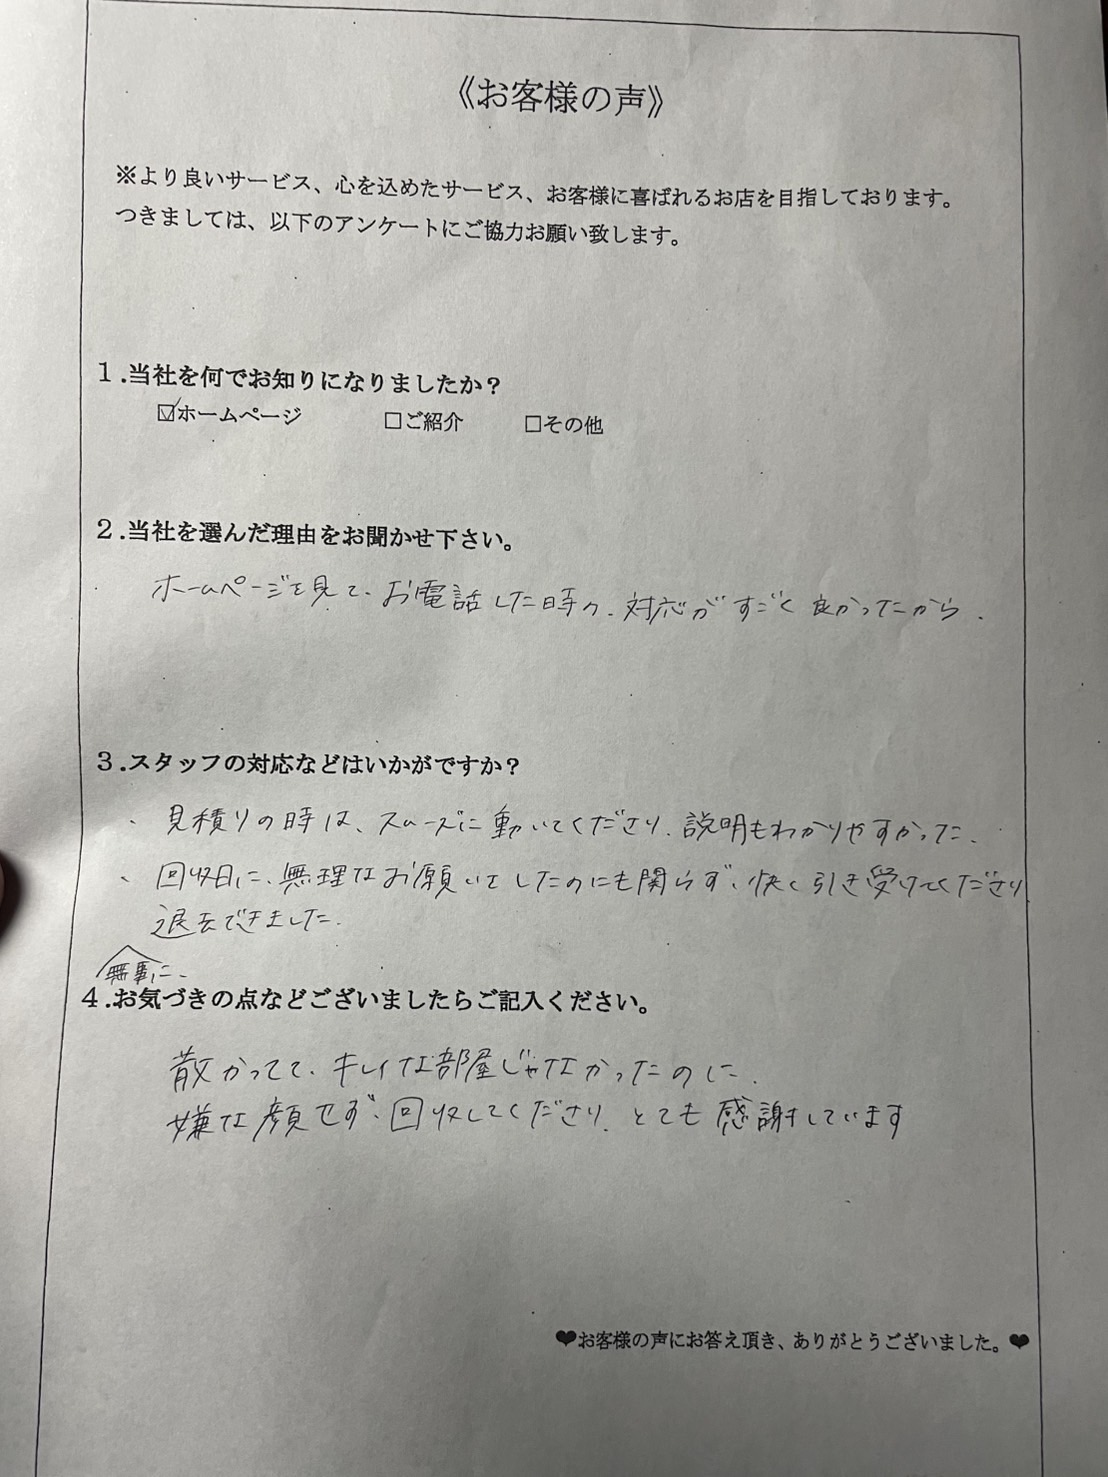 《お客様の声》
※より良いサービス、心を込めたサービス、お客様に喜ばれるお店を目指しております。
つきましては、以下のアンケートにご協力お願い致します。
１.当社を何でお知りになりましたか？
☑ホームページ □ご紹介 □その他
２.当社を選んだ理由をお聞かせ下さい。
ホームページを見て、お電話した時の、対応がすごく良かったから、
３.スタッフの対応などはいかがですか？
、見積りの時は、スムーズに動いてくださり、説明もわかりやすかった、
、回収日に、無理なお願いをしたのにも関らず、快く引き受けてくださり
退去できました、
無事に、
４.お気づきの点などございましたらご記入ください。
散かってて、キレイな部屋じゃなかったのに、
嫌な顔せず、回収してくださり、とても感謝しています
❤お客様の声にお答え頂き、ありがとうございました。❤